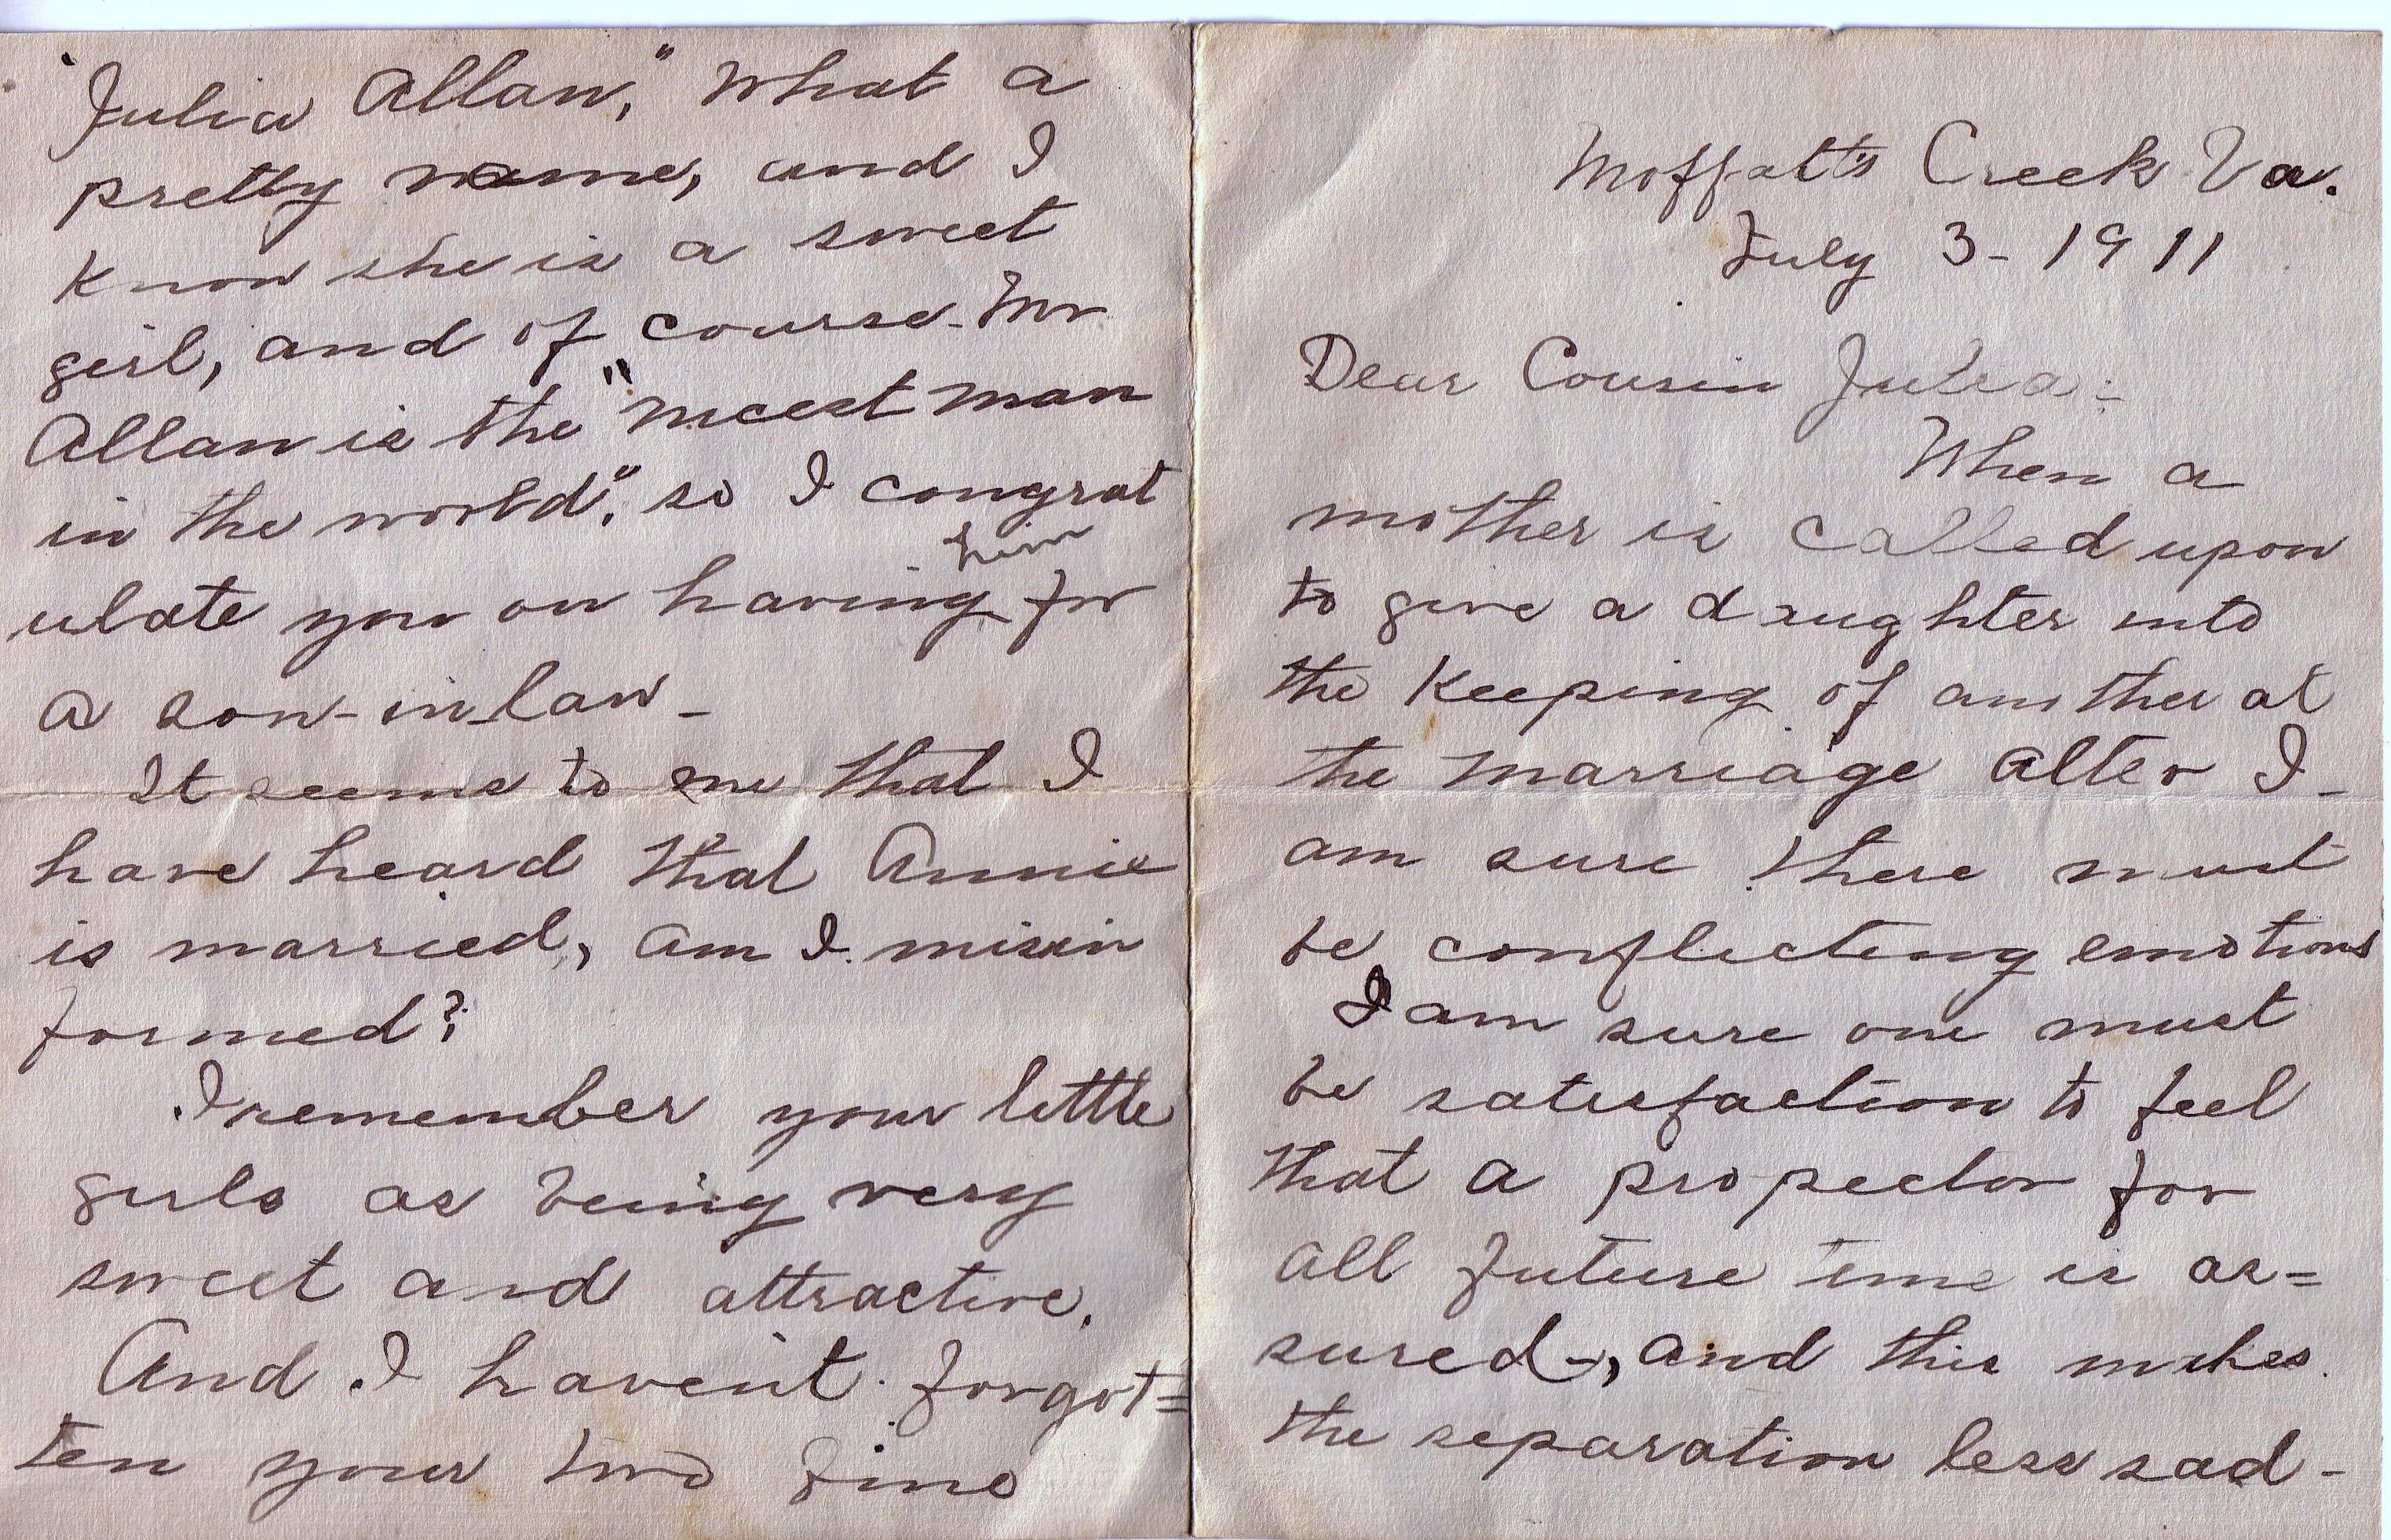 Moffatt's Creek Va.
July 3-1911
Dear Cousin Julia:
When a
mother is called upon
to give a daughter into
the keeping of another at
the marriage alter I-
am sure there must
be conflicting emotions
I am sure one must
be satisfaction to feel
that a propector for
all future time is as=
sured-, and this makes
the separation less sad-
"Julia Allan," What a
pretty name, and I
know she is a sweet
girl, and of course. Mr
Allan is the "nicest man
in the world". so I congrat
ulate you on having him for
a son-in-law-
It seems to me that I
have heard that Annie
is married, am I misin
formed?
I remember your little
girls as being very
sweet and attractive.
And I haven't forgot=
ten your two fine